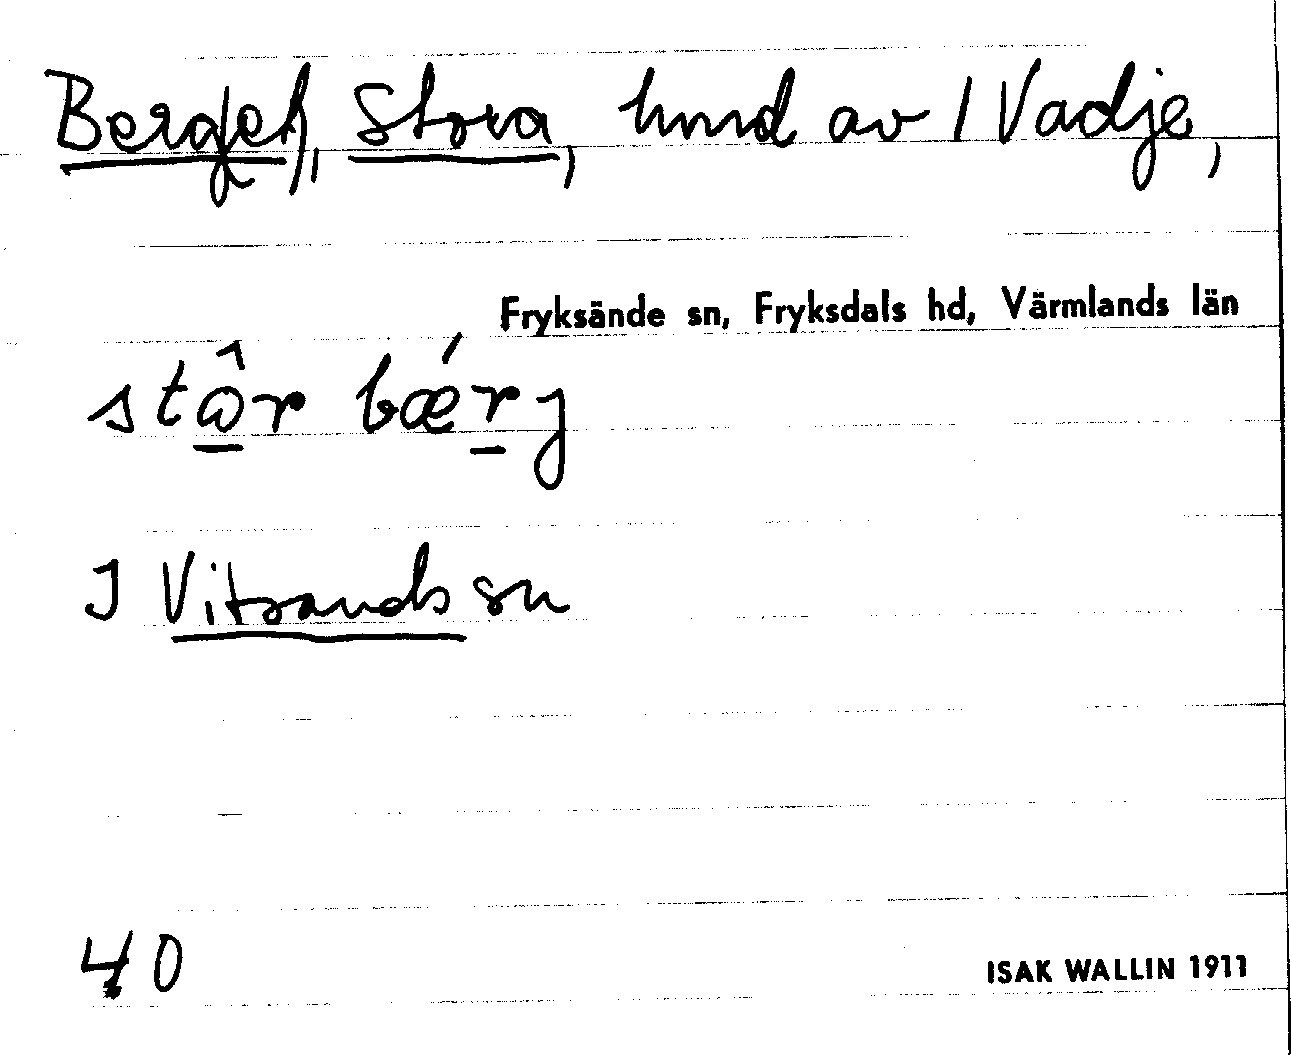 Berget, Stora, hmd av 1 Vadje,
Fryksände sn, Fryksdals hd, Värmlands län
stôr bǽrj
I Vitsands sn
40
ISAK WALLIN 1911